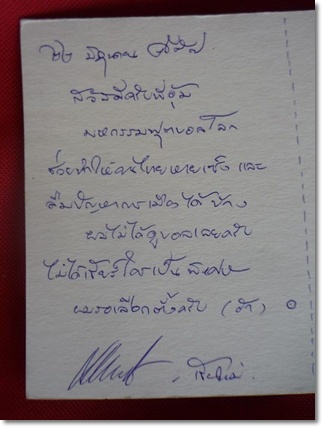 ๒๒ มิถุนายน ๕๓
สวัสดีครับพี่อุ้ม
มหกรรมฟุตบอลโลก
ช่วยทำให้คนไทยหายเซ็ง และ
ลืมปัญหาการเมืองได้บ้าง
ผมไม่ได้ดูบอลเลยครับ
ไม่ได้เชียร์ใครเป็นพิเศษ
ผมรอเลือกตั้งครับ (ฮา)
เชียงใหม่